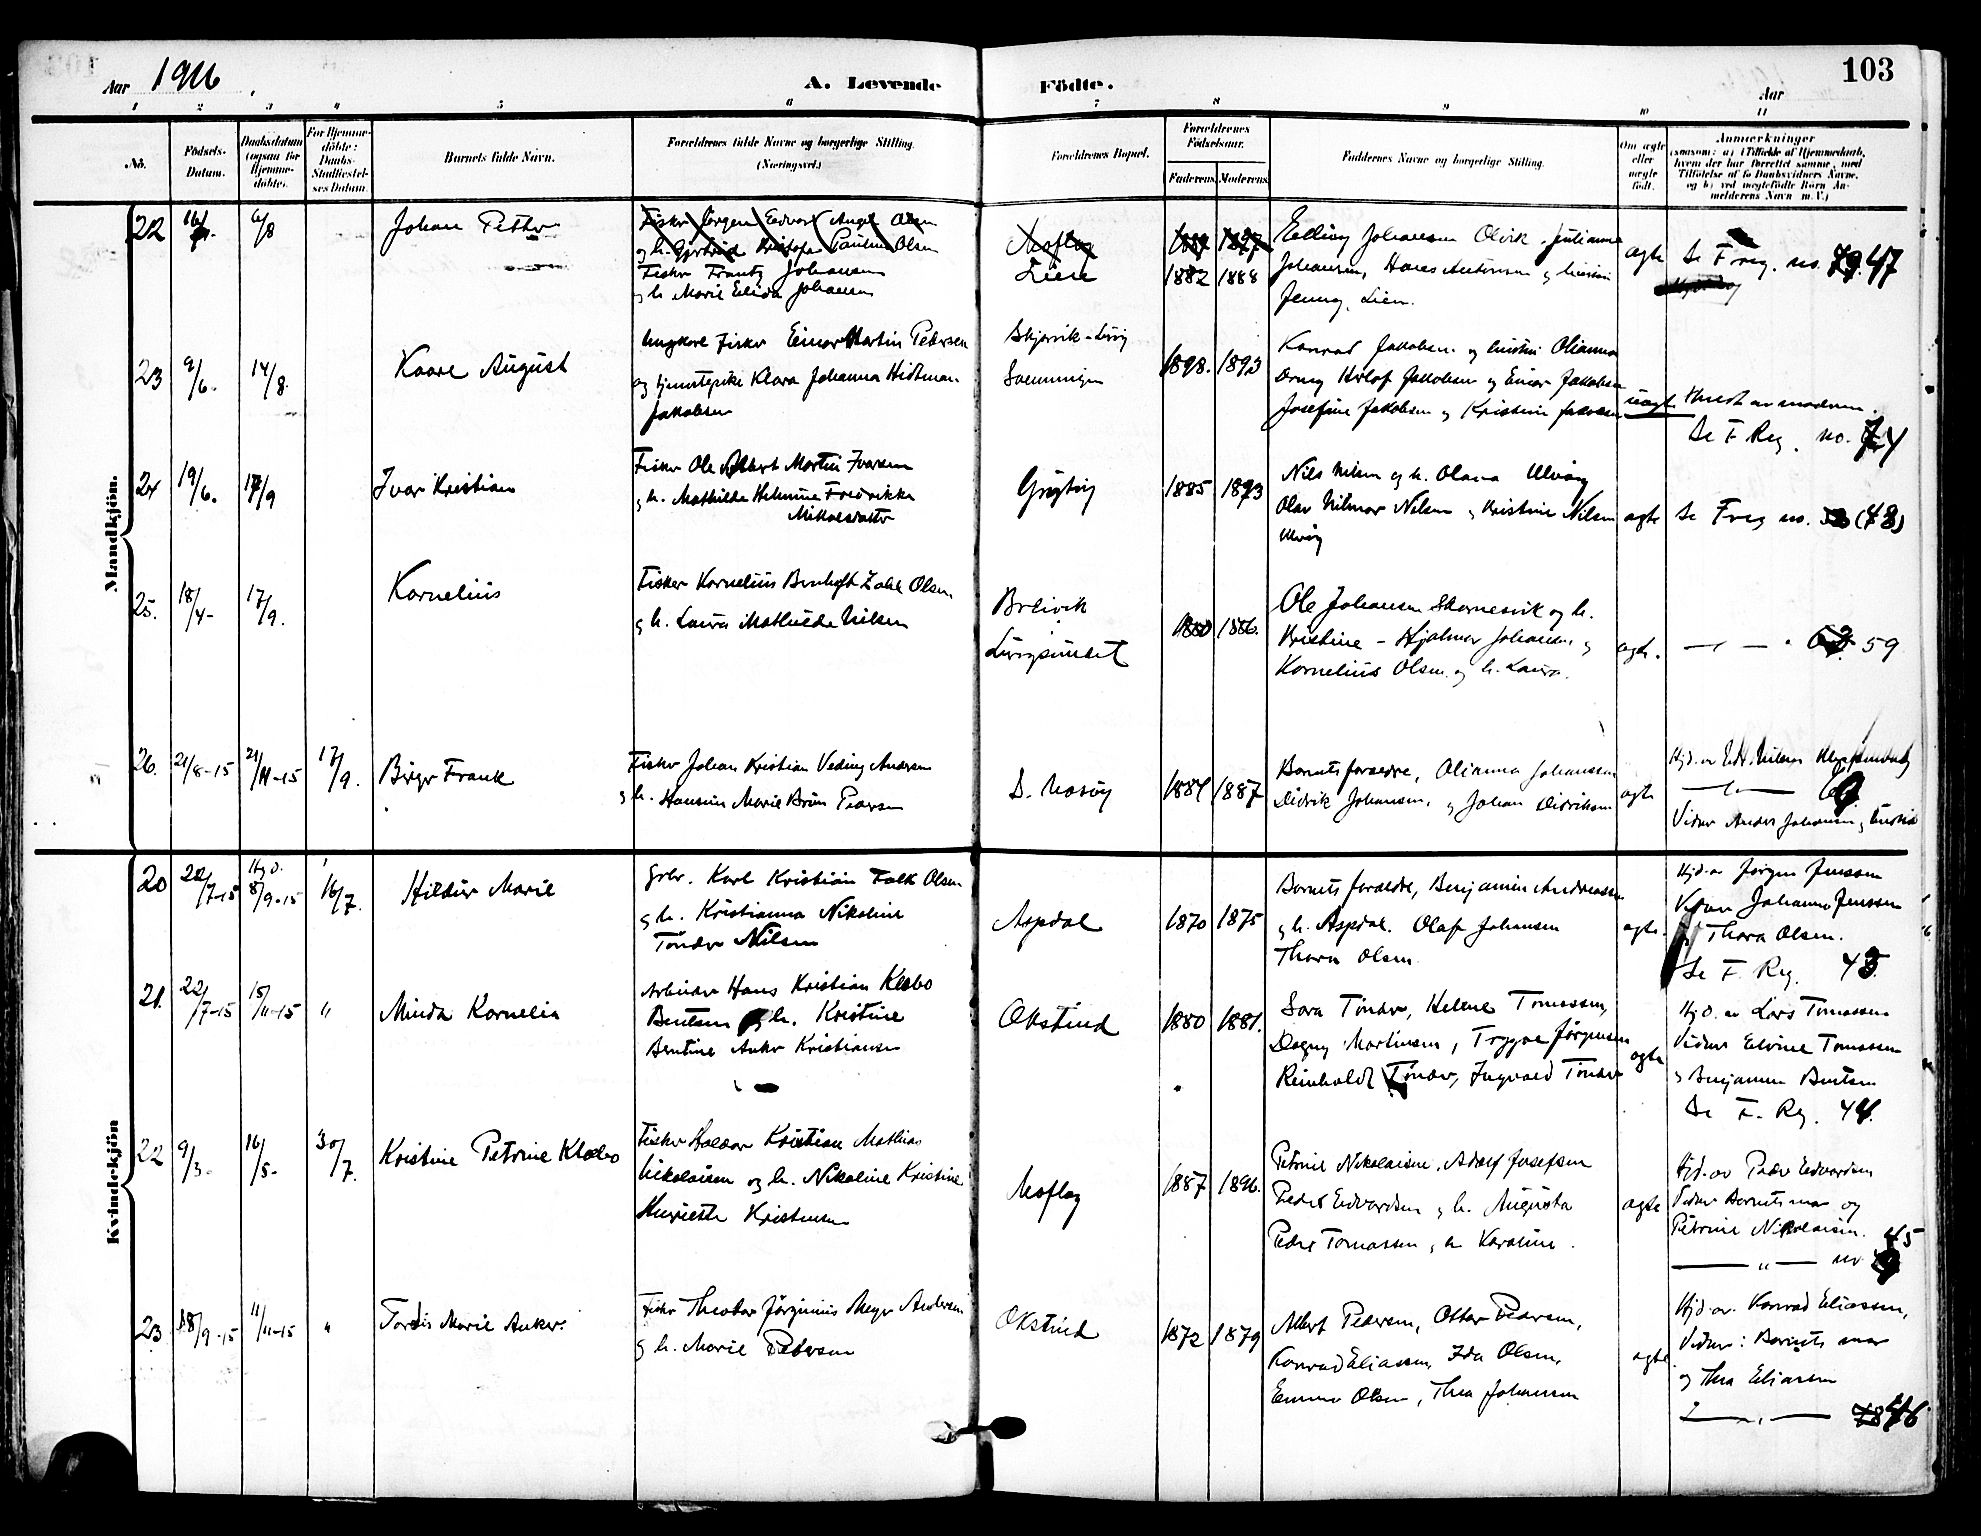 103
Aar 1916.
A. Levende Födte.
Aar
1 2 3 4 5 6 7 8 9 10 11
No.
Födsels-Datum.
Daabsdatum (ogsaa for Hjemme-döbte).
For Hjemme-döbte: Daabs-Stadfæstel-ses Datum.
Barnets fulde Navn.
Forældrenes fulde Navne og borgerlige Stilling. (Næringsvei.)
Forældrenes Bopæl.
Forældrenes Födselsaar.
Faderens. Moderens.
Faddernes Navne og borgerlige Stilling.
Om ægte eller uægte födt.
Anmærkninger
(saasom: a) i Tilfælde af Hjemmedaab, hvem der har forrettet samme, med Tilföielse af to Daabsvidners Navne, og b) ved uægtefödte Børn An-melderens Navn m. V.)
Mandkjön.
22
6/8
Johan Petter
Fisker Jörgen Edvard Angel Olsen
og h. Gjertrud Kristofa Pauline Olsen
Fisker Frantz Johansen
og h. Marie Elida Johansen
Moflag
Lien
1887 1897
1882 1888
Elling Johansen Olvik, Julianne
Johansen, Hans Antonsen og hustru
Jenny, Lien.
ægte
Se F reg. no. 79. 47
23 9/6. 14/8.
Kaare August
Ungkarl fisker Einar Martin Pedersen
og tjenestepike Klara Johanna Hidtman
Jakobsen
1898. 1893
Konrad Jakobsen og hustru Olianna
Jakobsen og Einar Jakobsen
Josefine Jakobsen og Kristine Jakobsen
uægte
Meldt av moderen.
Se F Reg. no. 74
24 19/6. 17/9
Ivar Kristian
Fisker Ole Albert Martin Ivarsen
og h. Mathilde Helmine Fredrikke
Mikalsdatter
1885 1893
Nils Nilsen og h. Olava Ulvøy
Olav Hilmar Nilsen og Kristine Nilsen
Ulvøy
ægte
Se F reg no. (48)
25. 18/4- 17/9.
Kornelius
Fisker Kornelius Benhoft Zahl Olsen
og h. Laura Mathilde Nilsen
Breivik
Lurøysundet
1880 1886.
Ole Johansen Skarnesvik og h.
Kristine - Hjalmar Johansen og
Kornelius Olsen og h. Laura.
ægte.
— " — " 59
26. 21/8-15 21/11-15 17/9.
Birger Frank
Fisker Johan Kristian Veding Andersen
og h. Hansine Marie Brun Pedersen
S. Nesøy
1884 1887
Barnets foreldre, Olianna Johansen
Didrik Johansen, og Johan Didriksen
ægte
Vidner Anders Johansen og hustru
Kvindekjön
20 20/7-15 Hjd. 8/9-15 16/7.
Hildur Marie
Grbr. Karl Kristian Falk Olsen
og h. Kristianna Nikoline
Tønder Nilsen
Aspdal
1870 1875
Barnets foreldre, Benjamin Andreassen
og h. Aspdal. Olaf Johansen
Thora Olsen.
ægte.
Hjd. av Jørgen Jenssen
Vidner Johanna Jenssen
og Thora Olsen.
Se F. Reg. 43
21. 22/7-15 15/11-15 "
Minda Kornelia
Arbeider Hans Kristian Klæbo
Bentsen og h. Kristine
Bentine Anker Kristiansen
Okstind
1880 1881.
Sara Tønder, Helene Tomassen,
Dagny Martinsen, Trygve Jørgensen
Reinholdt Tønder, Ingvald Tønder
ægte
Hjd. av Lars Tomassen
Vidner Elvine Tomassen
og Benjamin Bentsen
Se F. Reg. 44.
22 9/3- 16/5- 30/7.
Kristine Petrine Klæbo
Fisker Haldor Kristian Mathias
Nikolaisen og h. Nikoline Kristine
Henriette Kristensen
Moflag
1887 1896.
Petrine Nikolaisen, Adolf Josefsen
Peder Edvardsen og h. Augusta
Peder Tomassen og h. Karoline.
ægte
Hjd. av Peder Edvardsen
Vidner Barnets mor og
Petrine Nikolaisen. 45
— " — no
23 18/9-15 11/11-15 "
Tordis Marie Anker.
Fisker Theodor Jørginius Meyer Andersen
og h. Marie Pedersen
Okstind
1872 1879
Albert Pedersen, Ottar Pedersen,
Konrad Eliassen, Ida Olsen,
Emma Olsen, Thea Johansen
ægte
Hjd. av. Konrad Eliassen,
Vidner: Barnets mor
og Thea Eliassen
— " — 46